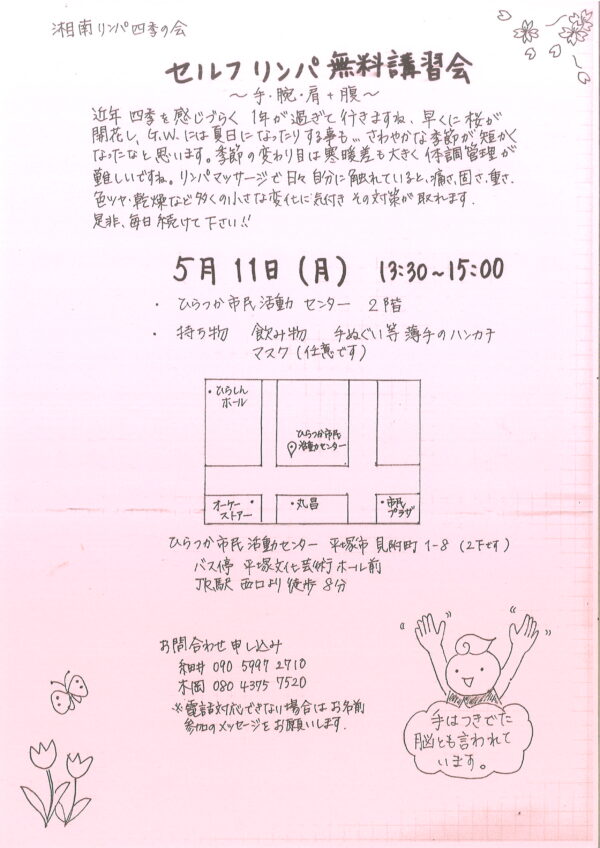 湘南リンパ四季の会
セルフリンパ無料講習会
～手・腕・肩+腹～
近年 四季を感じづらく 1年が過ぎて行きますね、早くに桜が
開花し、G.W.には夏日になったりする事も… さわやかな季節が短かく
なったなと思います。季節の変わり目は寒暖差も大きく体調管理が
難しいですね。リンパマッサージで日々自分に触れていると、痛さ、固さ、重さ、
色ツヤ・乾燥など多くの小さな変化に気付き その対策が取れます。
是非、毎日続けて下さい!!
5月11日(月) 13:30~15:00
・ ひらつか市民活動センター 2階
・ 持ち物 飲み物 手ぬぐい等薄手のハンカチ
マスク(任意です)
・ひらしん
ホール
ひらつか市民
活動センター
オーケー・
ストアー
・丸昌
・市民
プラザ
ひらつか市民活動センター 平塚市見附町1-8
バス停 平塚文化芸術ホール前
JR駅 西口より徒歩8分
お問合わせ申し込み
細井 090 5997 2710
木岡 080 4375 7520
※電話対応できない場合はお名前
参加のメッセージをお願いします。
手はつきでた
脳とも言われて
います。